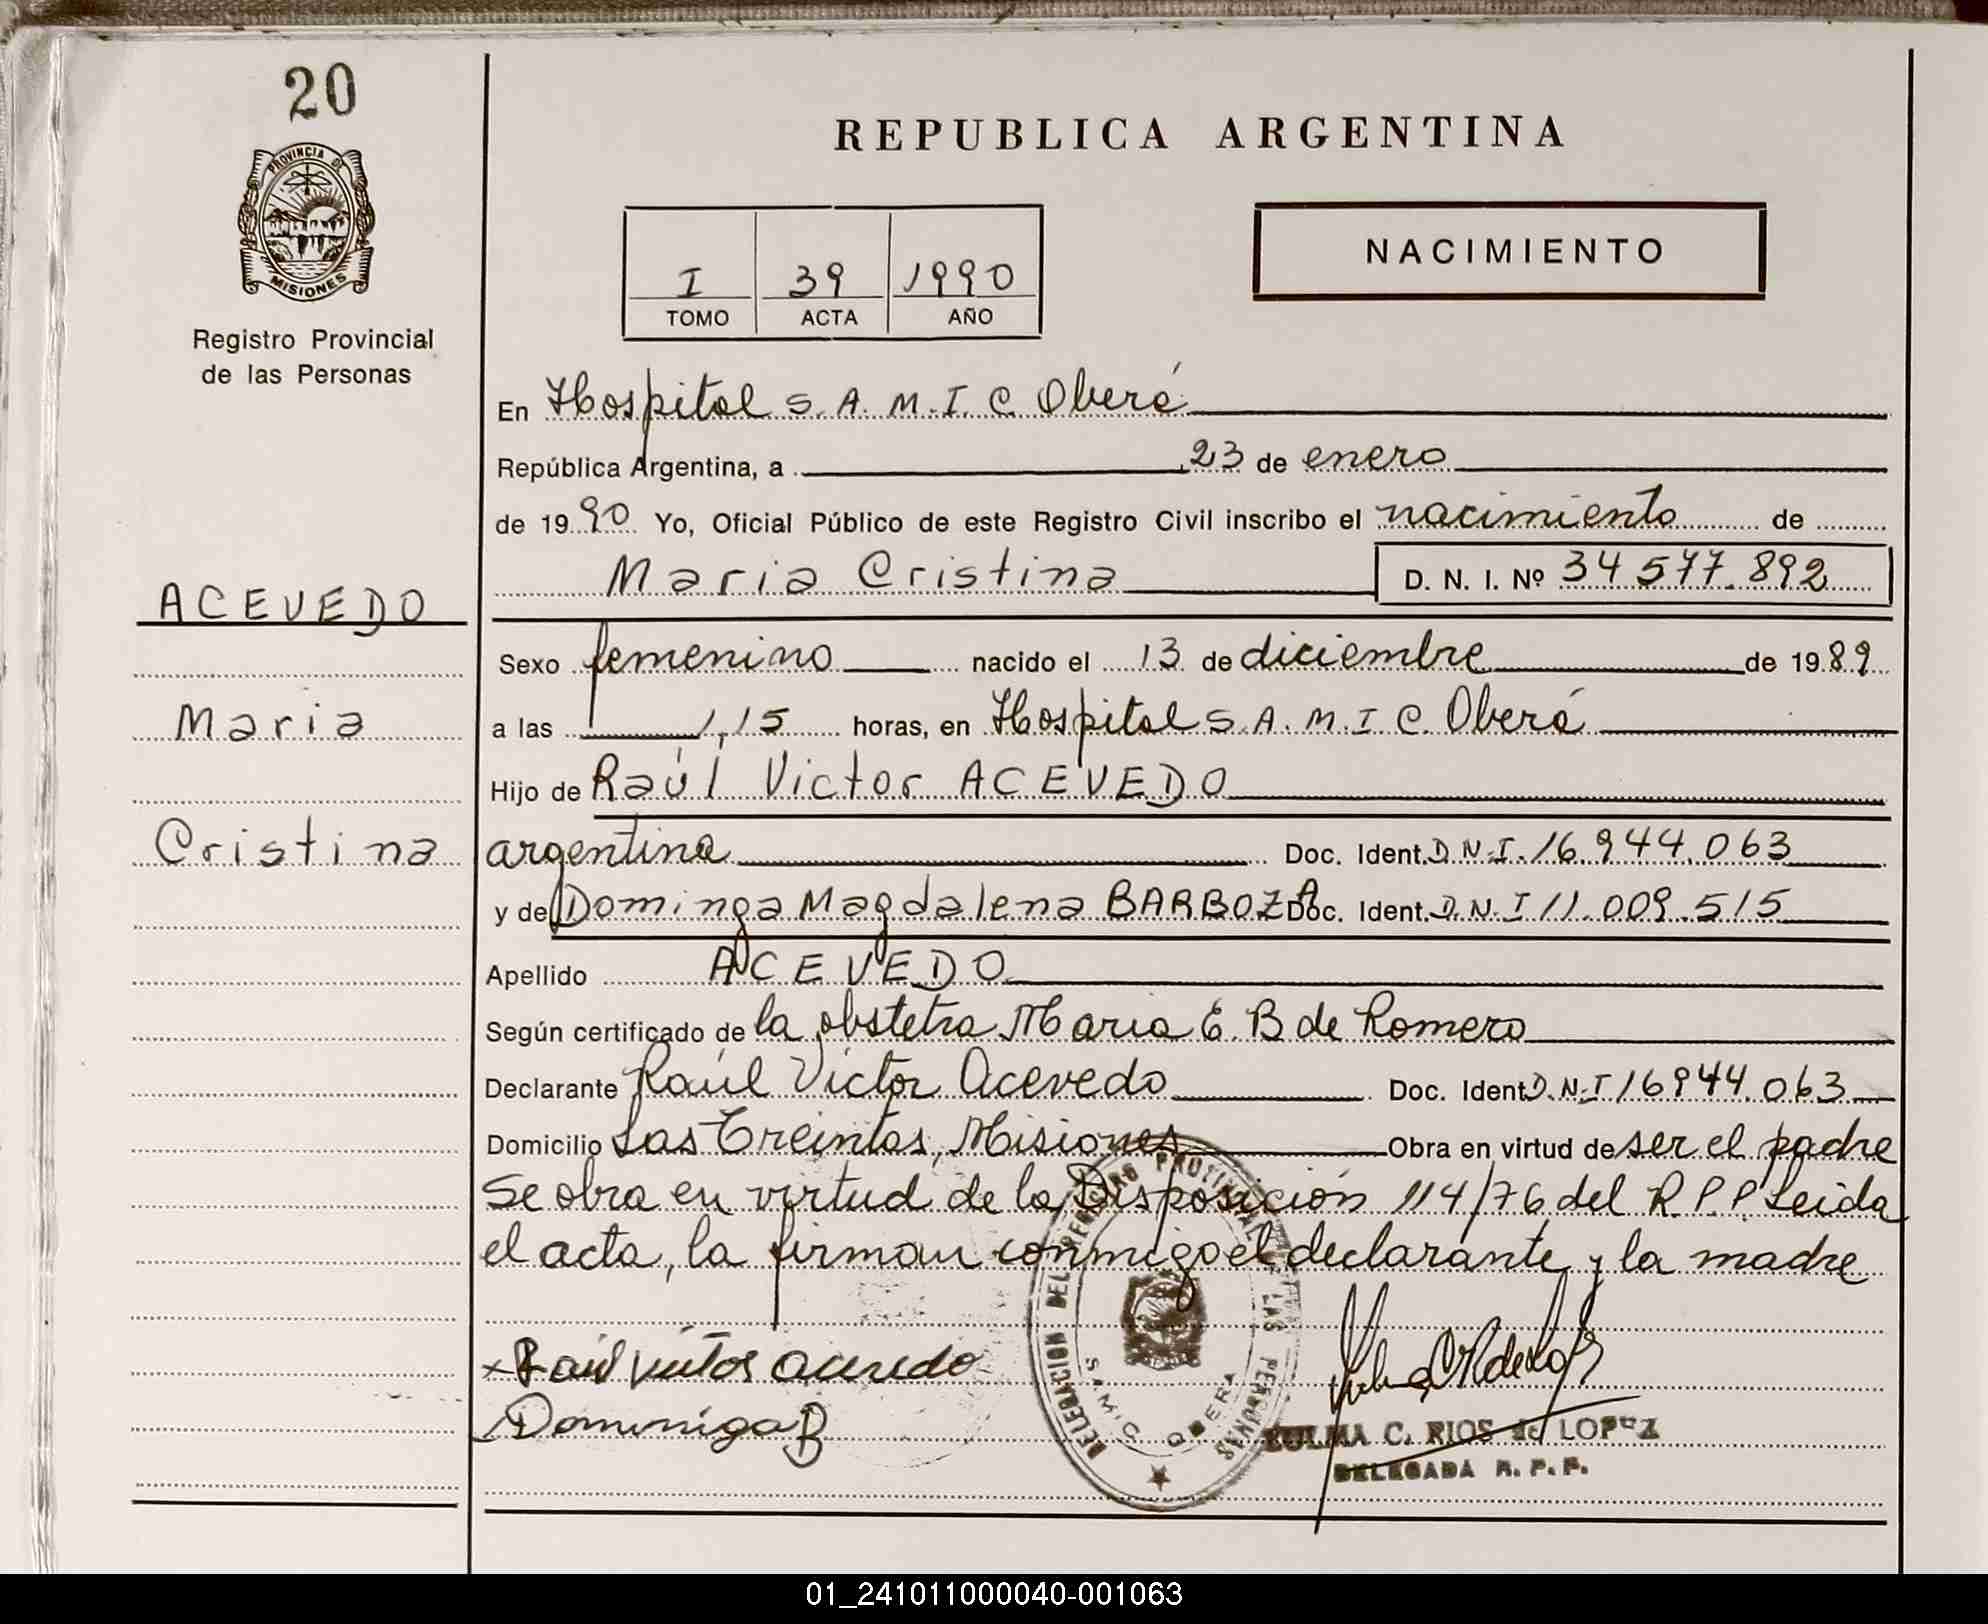 20
PROVINCIA DE
MISIONES
Registro Provincial
de las Personas
ACEVEDO
Maria
Cristina
REPUBLICA ARGENTINA
I 39 1990
TOMO ACTA AÑO
NACIMIENTO
En Hospital S.A.M.I.C. Oberá
República Argentina, a 23 de enero
de 1990 Yo, Oficial Público de este Registro Civil inscribo el nacimiento de
Maria Cristina D. N. I. Nº 34577.892
Sexo femenino nacido el 13 de diciembre de 1989
a las 1,15 horas, en Hospital S.A.M.I.C. Oberá
Hijo de Raúl Victor ACEVEDO
argentina Doc. Ident. D.N.I. 16.944.063
y de Dominga Magdalena BARBOZA Doc. Ident. D.N.I 11.009.515
Apellido ACEVEDO
Según certificado de la obstetra Maria E. B de Romero
Declarante Raúl Victor Acevedo Doc. Ident D.N.I 16944.063
Domicilio Los Treintas, Misiones Obra en virtud de ser el padre
Se obra en virtud de la Disposición 114/76 del R.P.P. Leida
el acta, la firman conmigo el declarante y la madre
DELEGACION DEL REGISTRO PROVINCIAL DE LAS PERSONAS
SAMIC OBERA
x Raúl Victor acevedo
Dominiga B
ZULMA C. RIOS de LOPEZ
DELEGADA R. P. P.
01_241011000040-001063